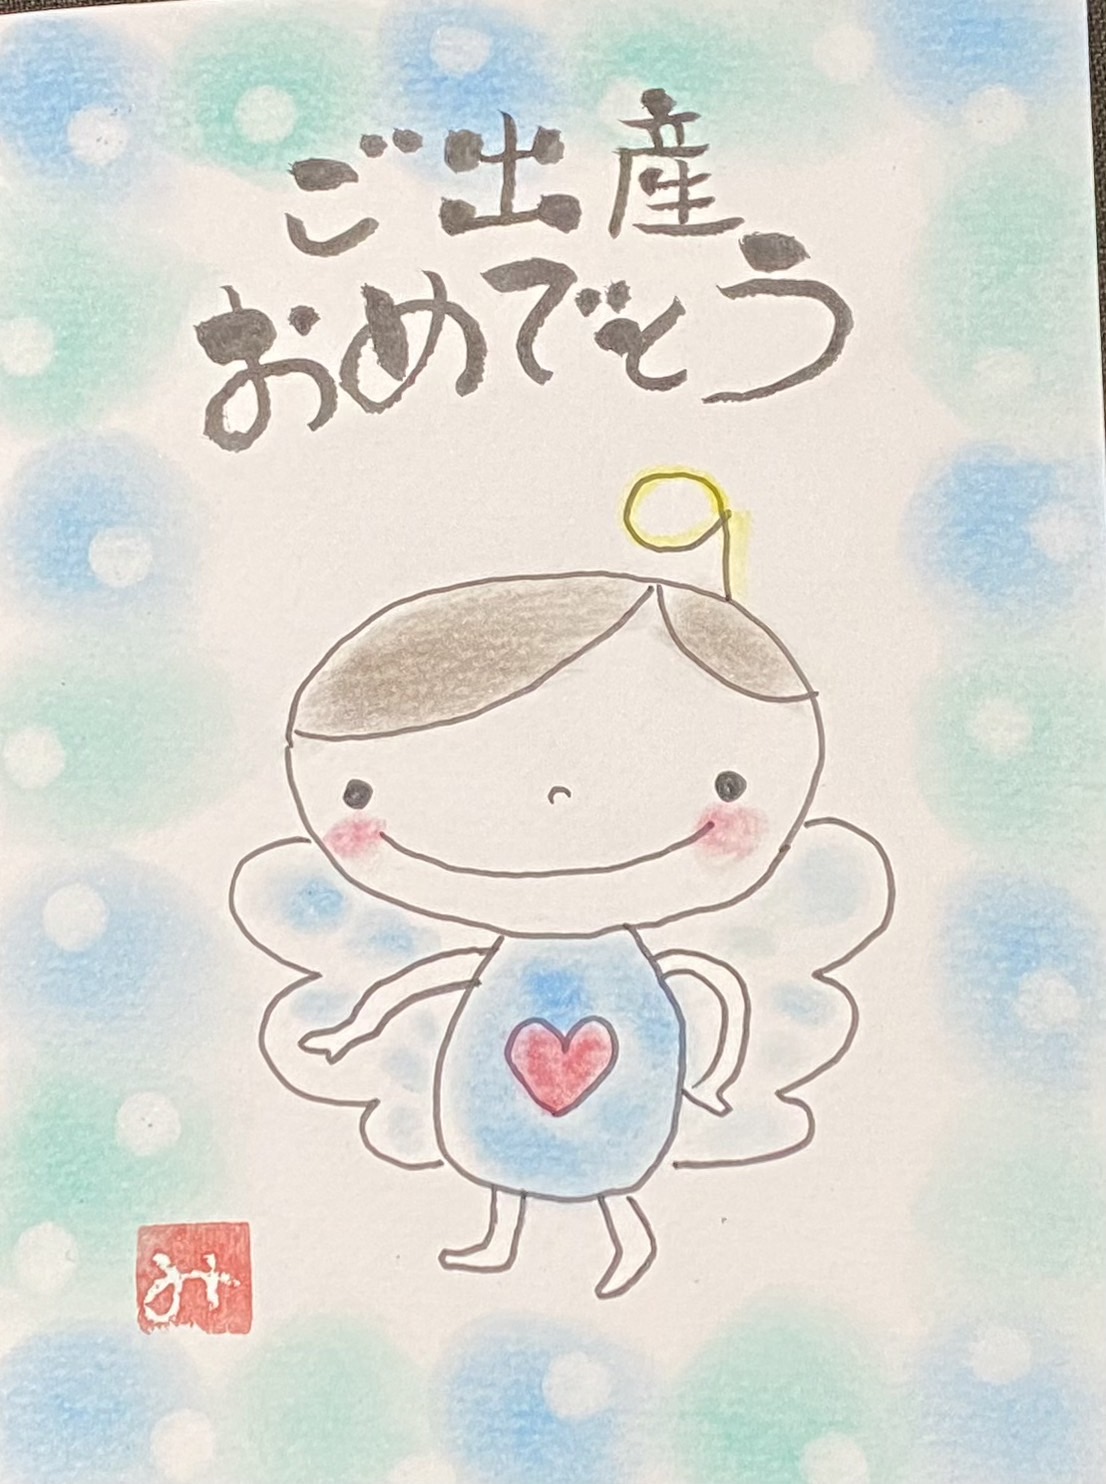 ご出産
おめでとう
み